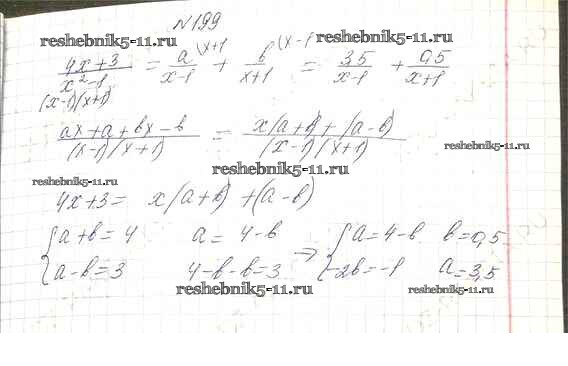 №199
reshebnik5-11.ru reshebnik5-11.ru
(4x+3)/(x²-1) = a/(x-1) \(x+1 + b/(x+1) \(x-1 = 3,5/(x-1) + 0,5/(x+1)
(x-1)(x+1)
(ax+a+bx-b)/((x-1)(x+1)) = (x(a+b)+(a-b))/((x-1)(x+1))
reshebnik5-11.ru
reshebnik5-11.ru
4x+3= x(a+b)+(a-b)
{a+b=4 a=4-b => {a=4-b b=0,5
a-b=3 4-b-b=3 -2b=-1 a=3,5
reshebnik5-11.ru reshebnik5-11.ru